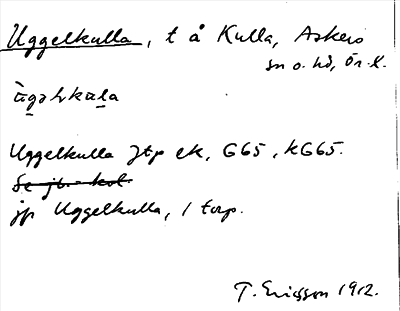 Uggelkulla, t å Kulla, Askers
sn o. hd, Ör. l.
Uggelkulla Jtp ek, G65, kG65.
Se jb.-kol.
jp Uggelkulla, 1 torp.
T. Ericsson 1912.